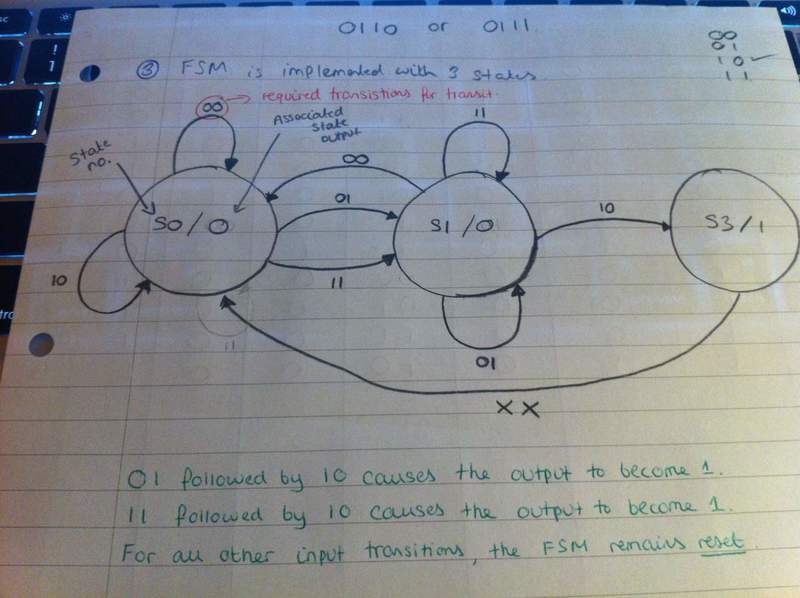 0110 or 0111.
00
01
10 ✓
11
③ FSM is implemented with 3 states.
00 → required transistions for transit.
Associated
state
output
State
no.
11
00
01
S0/0
S1/0
10
S3/1
10
11
11
01
XX
01 followed by 10 causes the output to become 1.
11 followed by 10 causes the output to become 1.
For all other input transitions, the FSM remains reset.